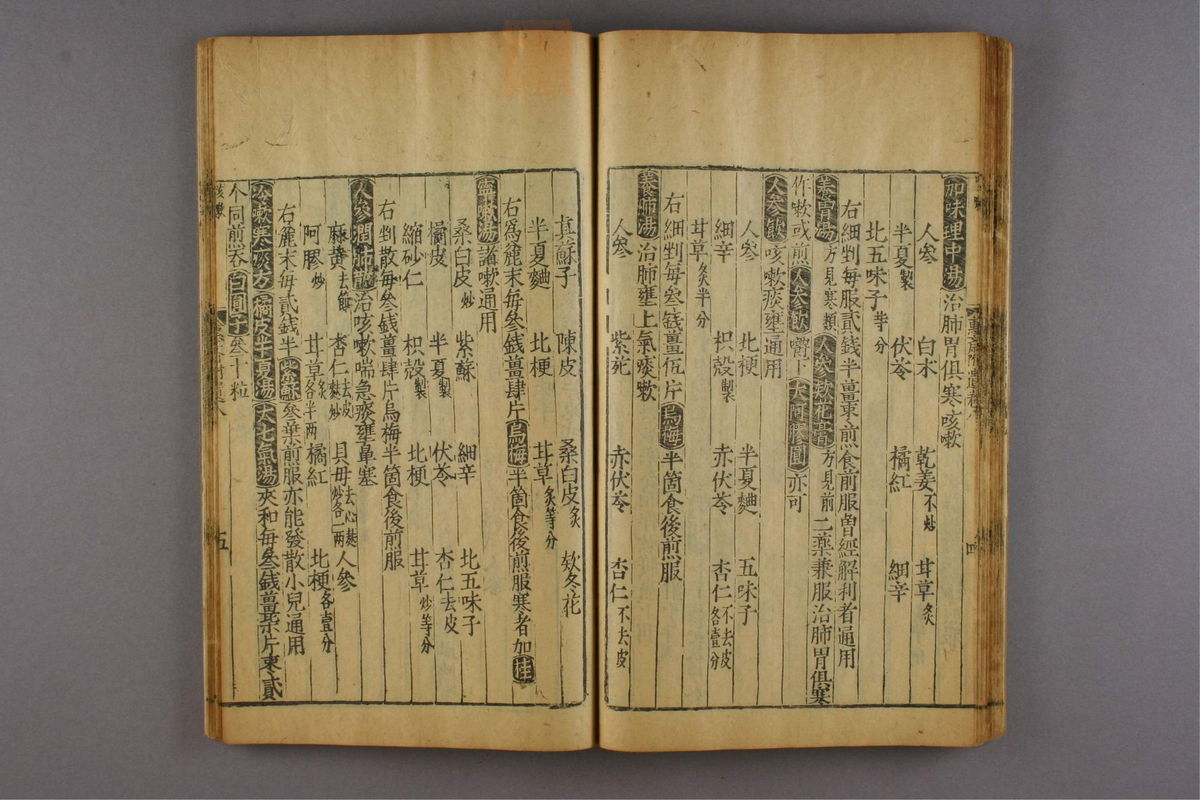 加味理中湯治肺胃俱寒咳嗽
人參 白朮 乾姜不炒 甘草炙
半夏製 伏苓 橘紅 細辛
北五味子等分
右細剉每服貳錢半薑棗煎食前服曾經解利者通用
養胃湯方見寒類人參款花膏方見前二藥兼服治肺胃俱寒
作嗽或煎人參飲嚼下大阿膠圓亦可
人參飲咳嗽痰壅通用
人參 北梗 半夏麯 五味子
細辛 枳殼製 赤伏苓 杏仁不去皮各壹分
甘草炙半分
右細剉每叄錢薑伍片烏梅半箇食後煎服
養肺湯治肺壅上氣痰嗽
人參 紫苑 赤伏苓 杏仁不去皮
真蘇子 陳皮 桑白皮炙 欵冬花
半夏麯 北梗 甘草炙等分
右為麄末每叄錢薑肆片烏梅半箇食後煎服寒者加桂
寧嗽湯諸嗽通用
桑白皮炒 紫蘇 細辛 北五味子
橘皮 半夏製 伏苓 杏仁去皮
縮砂仁 枳殼製 北梗 甘草炒等分
右剉散每叄錢薑肆片烏梅半箇食後煎服
人參潤肺散治咳嗽喘急痰壅鼻塞
麻黃去節 杏仁去皮麩炒 貝母去心麩炒各一兩 人參
阿膠炒 甘草炙各半兩 橘紅 北梗各壹分
右麄末每貳錢半紫蘇叄葉煎服亦能發散小兒通用
嗽寒痰方橘皮半夏湯大七氣湯夾和每叄錢薑柒片棗貳
个同前煎吞百圓子叄十粒